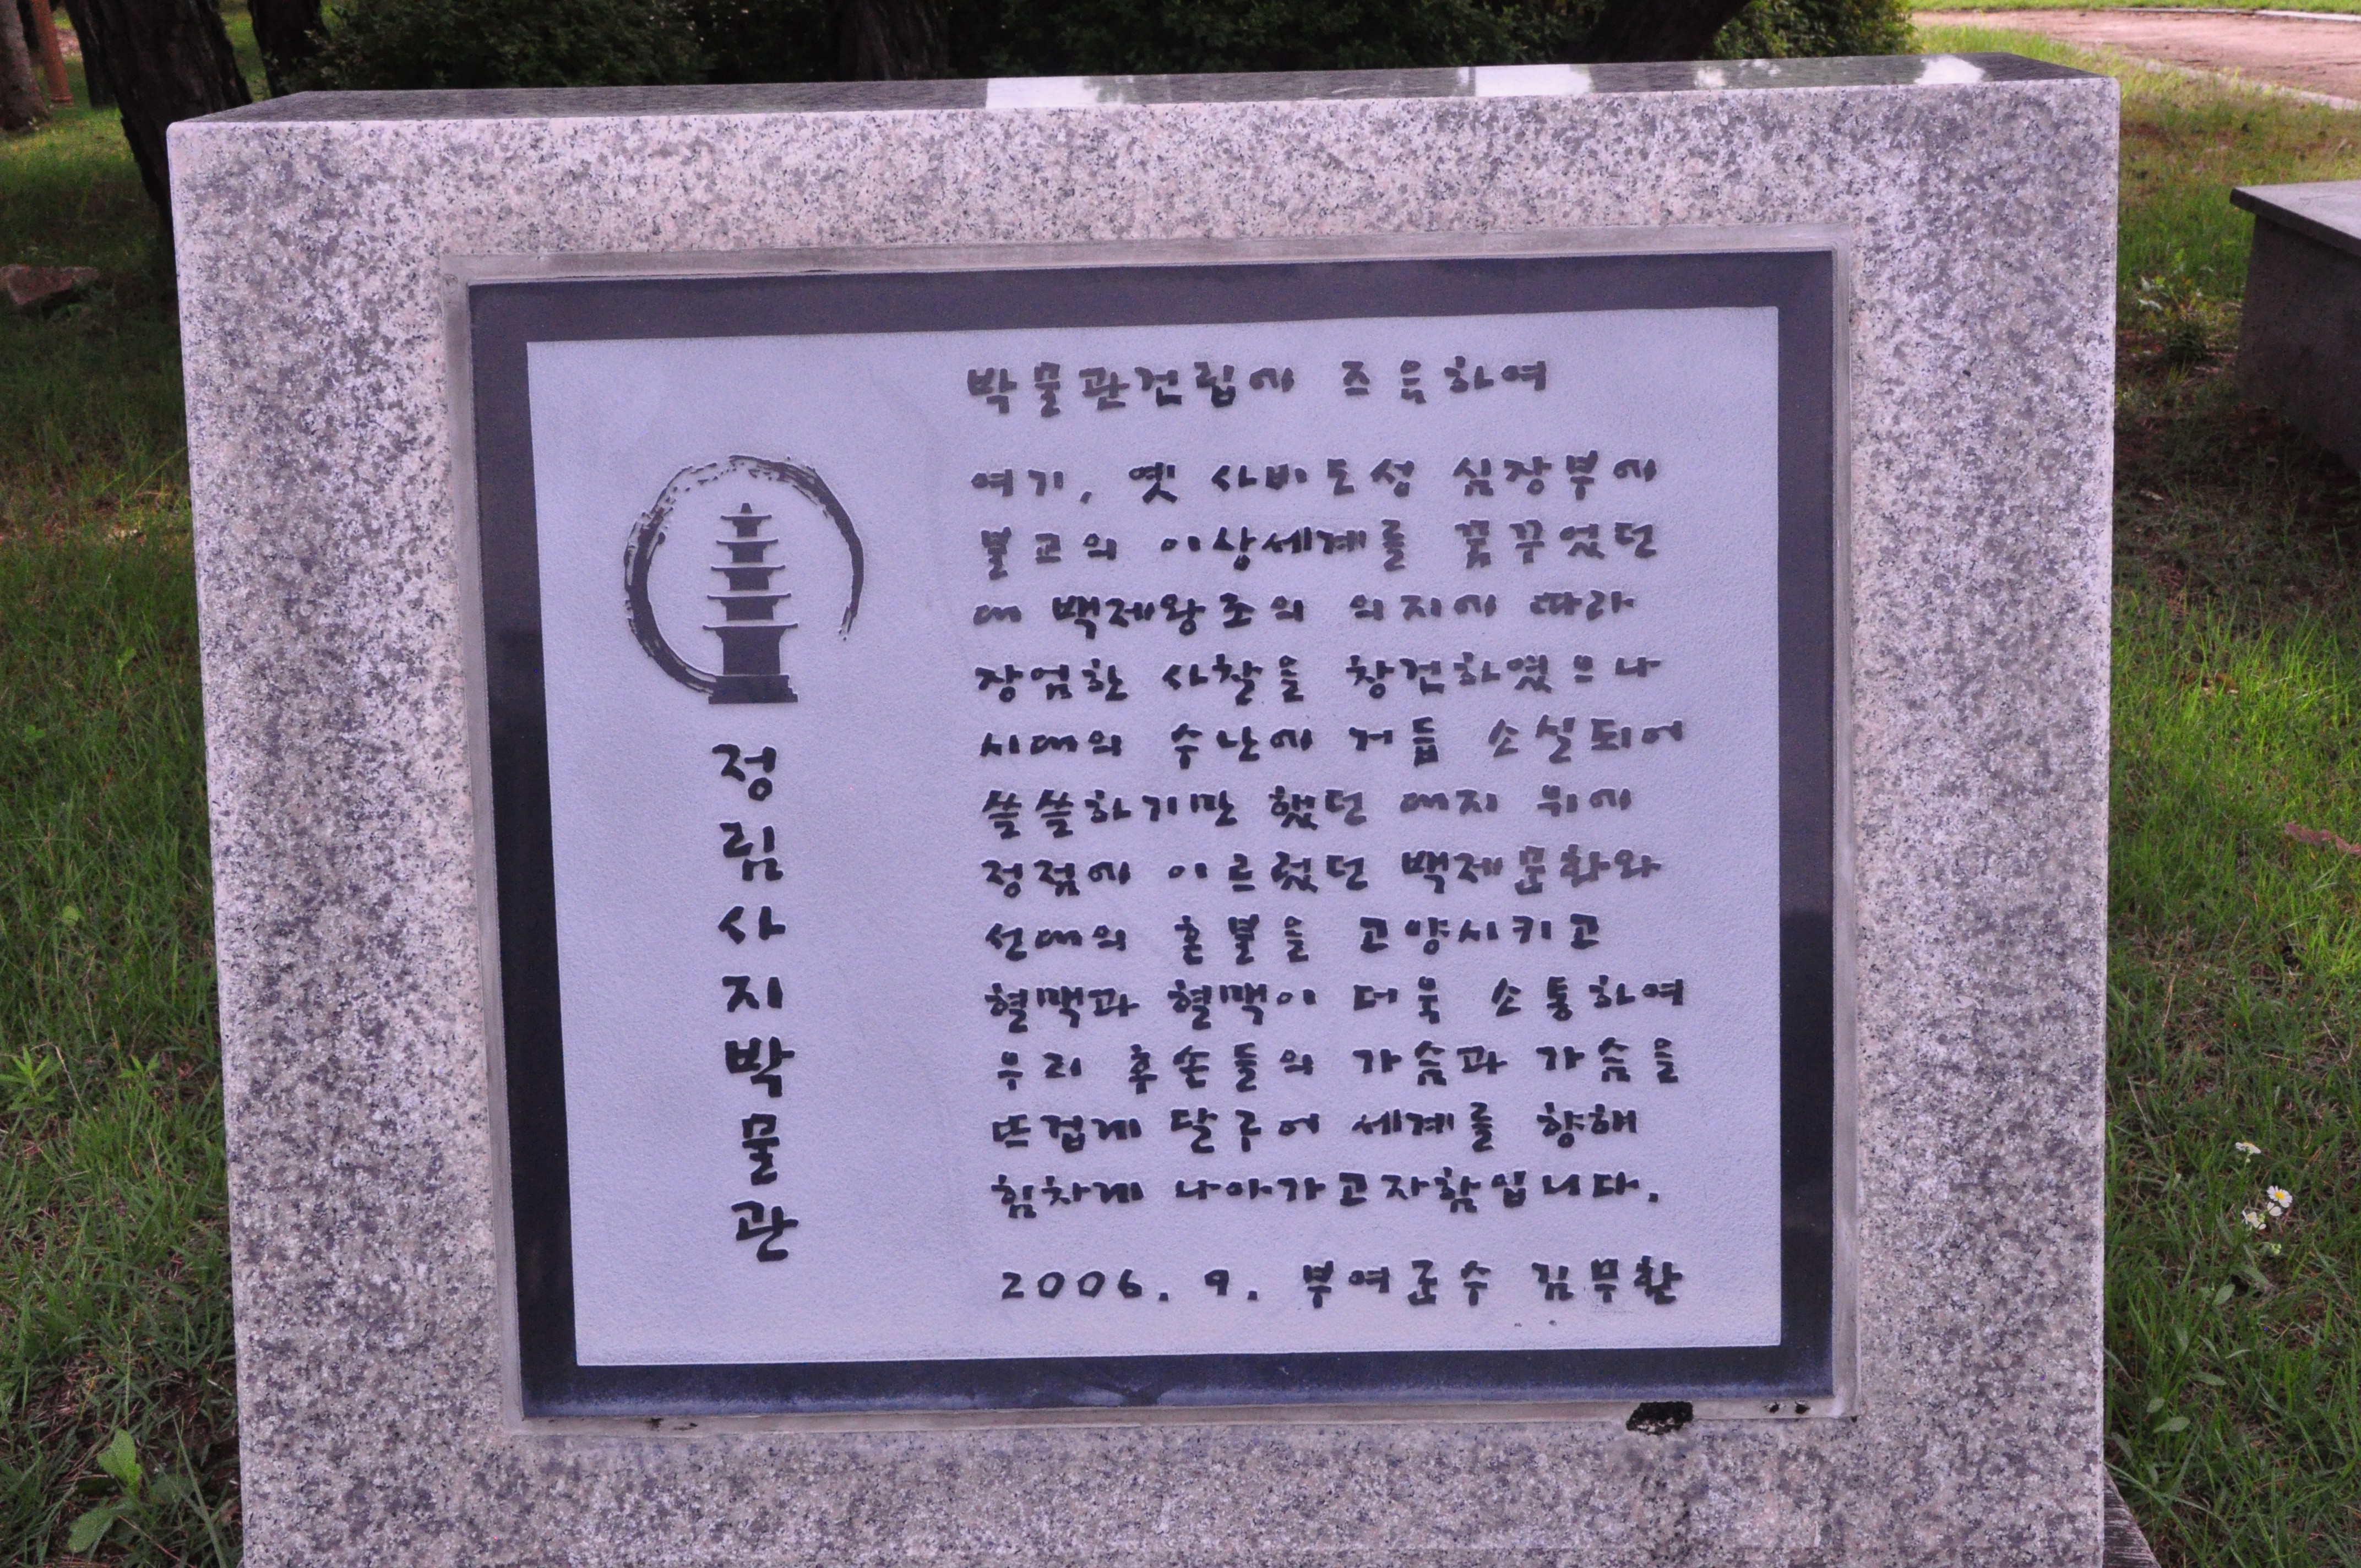 박물관건립에 즈음하여
여기, 옛 사비도성 심장부에
불교의 이상세계를 꿈꾸었던
대 백제왕조의 의지에 따라
장엄한 사찰을 창건하였으나
시대의 수난에 거듭 소실되어
쓸쓸하기만 했던 대지 위에
정점에 이르렀던 백제문화와
선대의 혼불을 고양시키고
혈맥과 혈맥이 더욱 소통하여
우리 후손들의 가슴과 가슴을
뜨겁게 달구어 세계를 향해
힘차게 나아가고자함입니다.
2006. 9. 부여군수 김무환
정림사지박물관